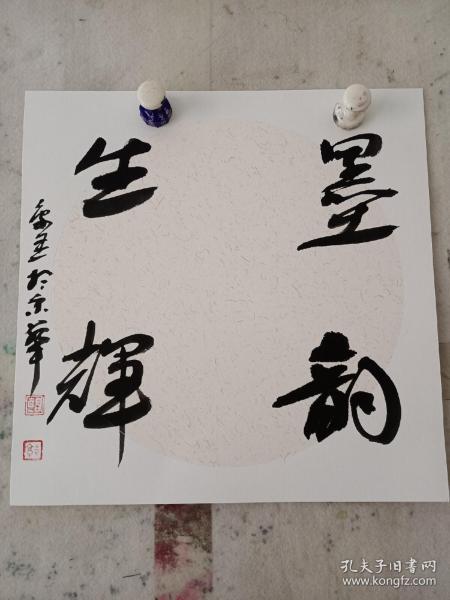 墨韵
生輝
於京華
孔夫子旧书网
www.kongfz.com